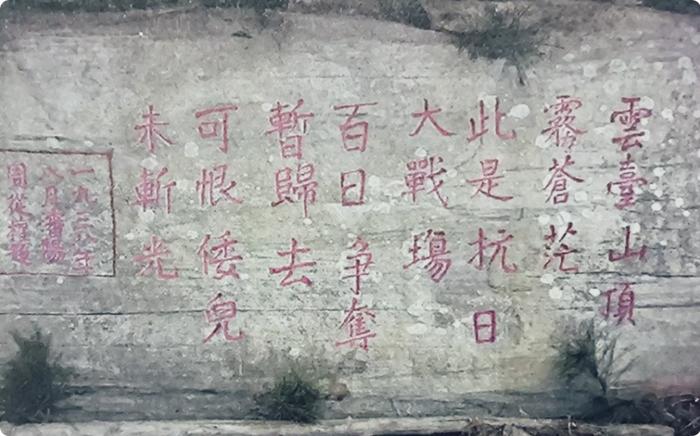 雲臺山頂
霧蒼茫
此是抗日
大戰塲
百日争奪
暫歸去
可恨倭兒
未斬光
一九三八年
八月